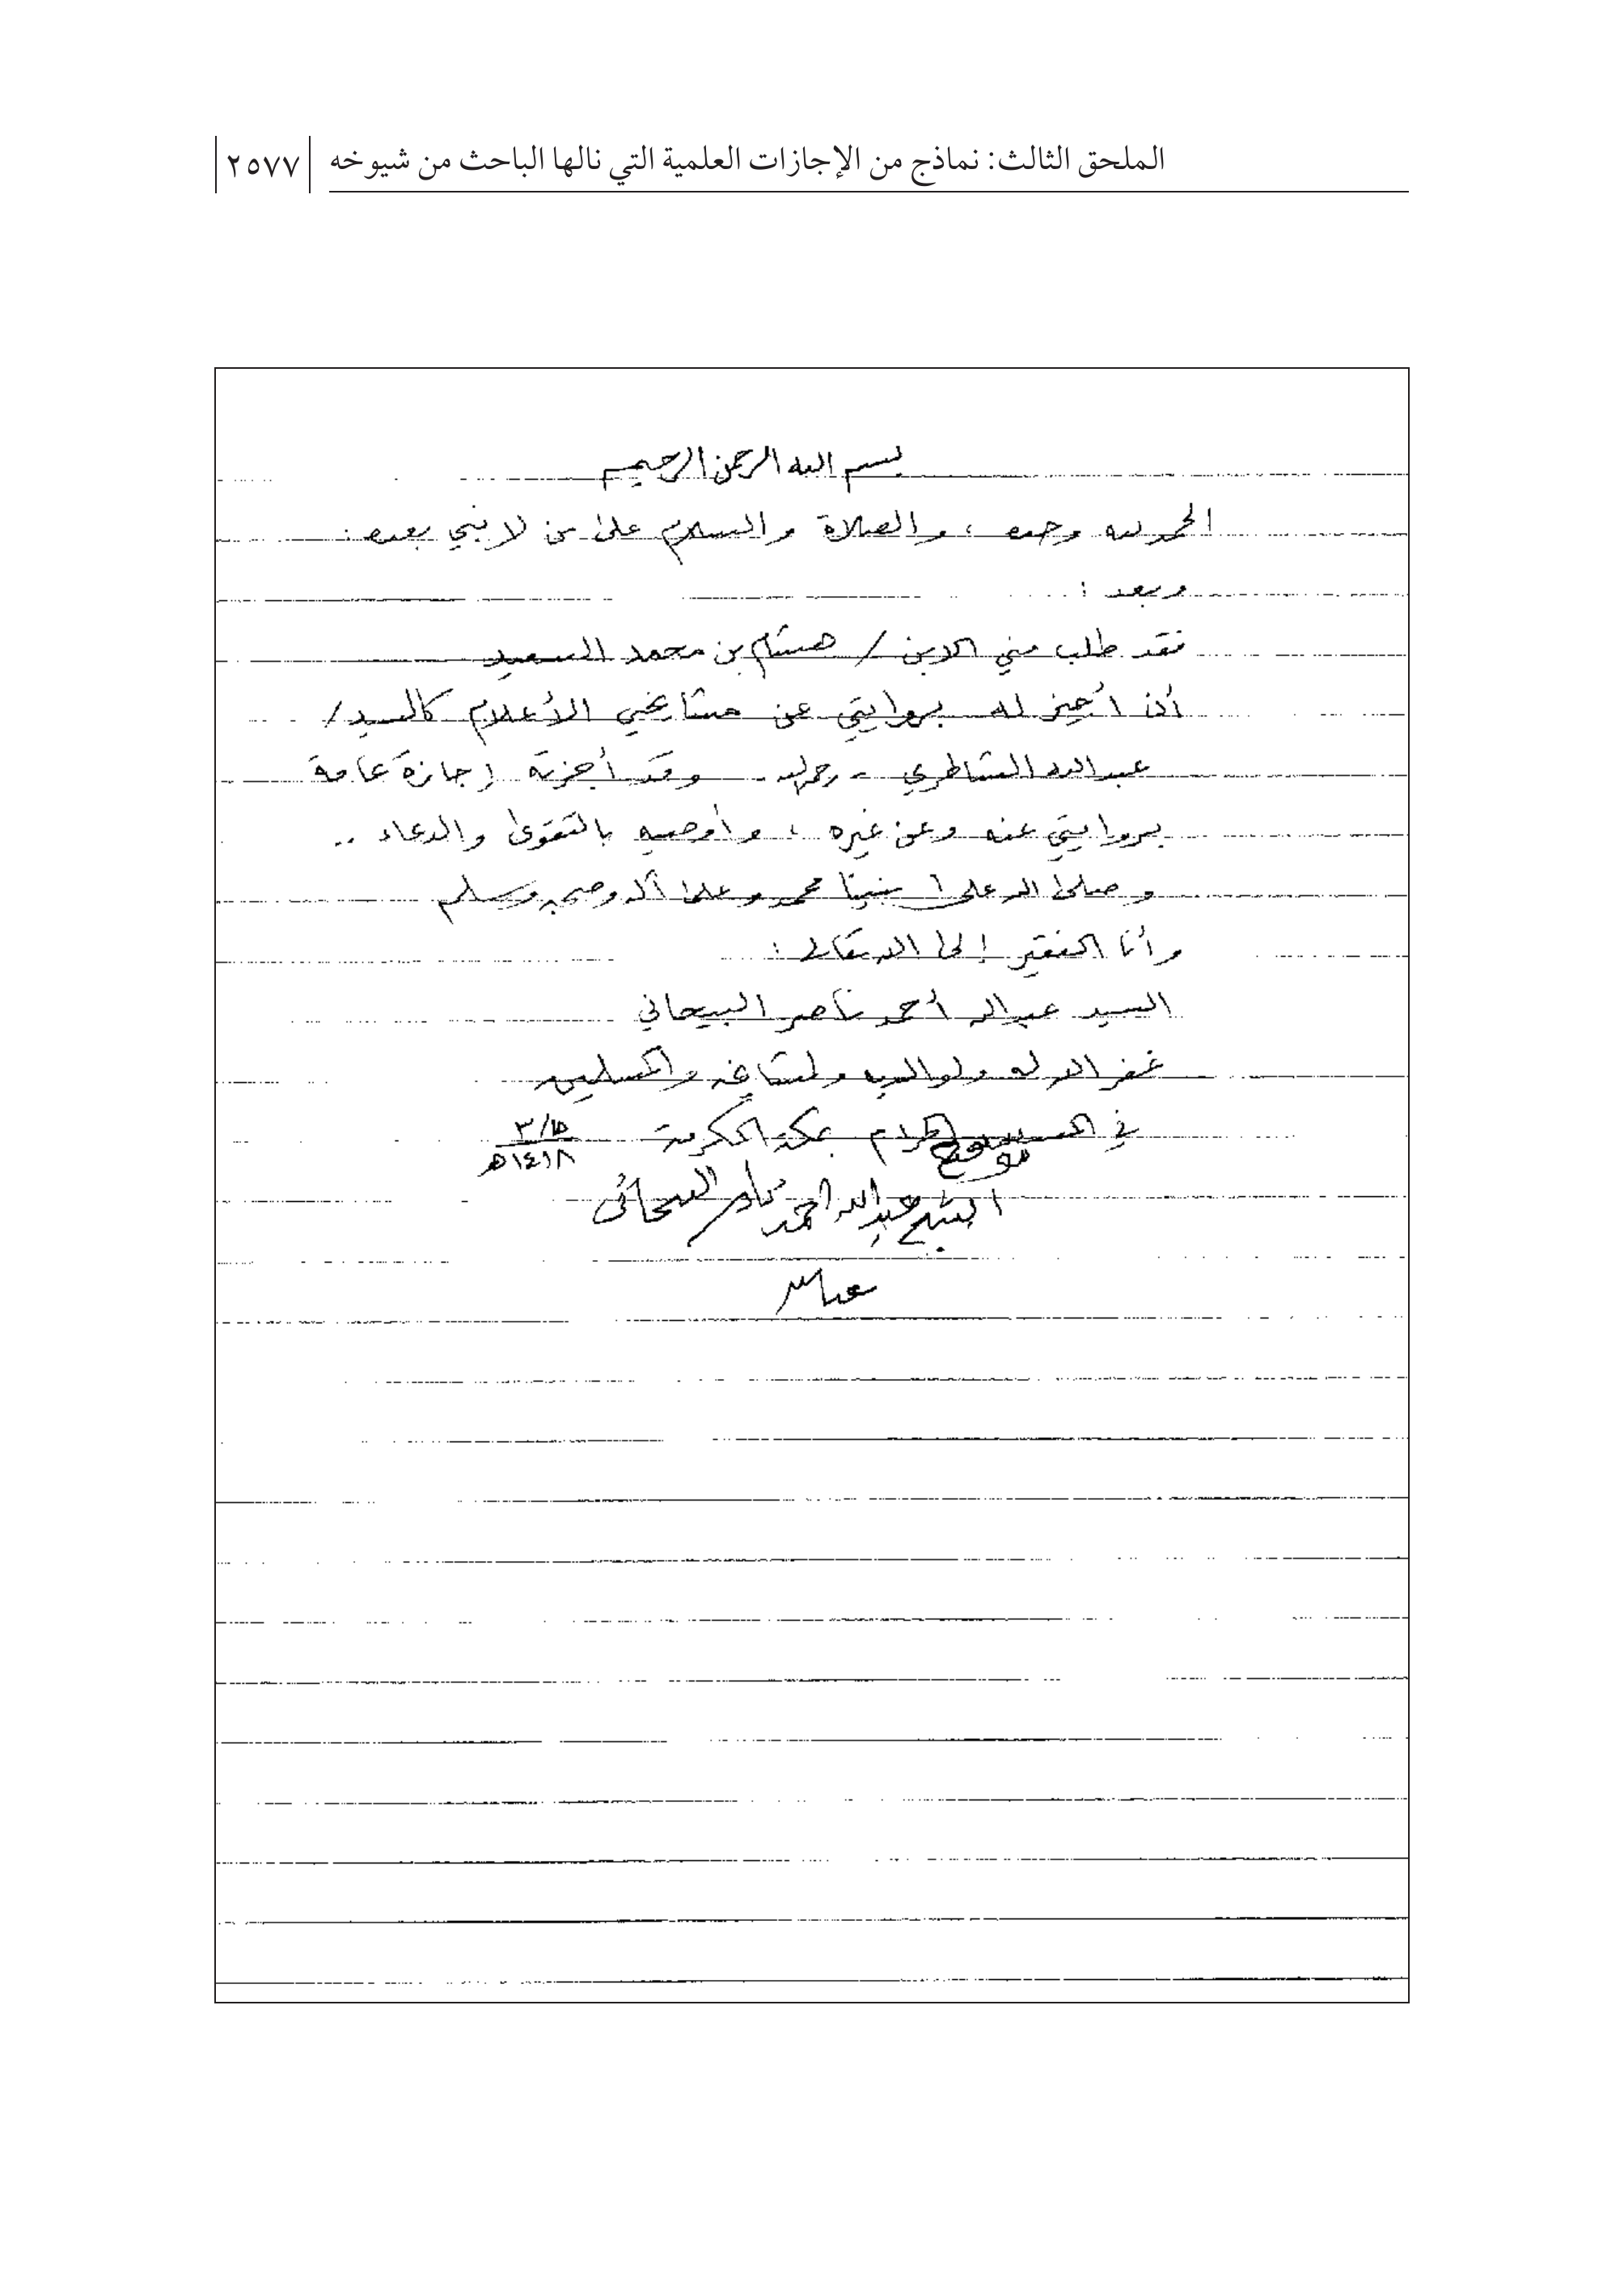 الملحق الثالث: نماذج من الإجازات العلمية التي نالها الباحث من شيوخه ٢٥٧٧
بسم الله الرحمن الرحيم
الحمد لله وحده ، والصلاة والسلام على من لا نبي بعده .
وبعد :
فقد طلب مني الابن / هشام بن محمد السعيد
أن أجيز له بروايتي عن مشايخي الأعلام كالسيد /
عبدالله الشاطري - رحمه الله - وقد أجزته إجازة عامة
بروايتي عنه وعن غيره ، وأوصيه بالتقوى والدعاء ..
وصلى الله على نبينا محمد وعلى آله وصحبه وسلم
وأنا الفقير إلى الله تعالى :
السيد عبدالله أحمد ناصر البيحاني
غفر الله له ولوالديه ولمشايخه والمسلمين
في المسجد الحرام بمكة المكرمة
١٤١٨هـ
الشيخ عبد الله احمد ناصر البيحاني